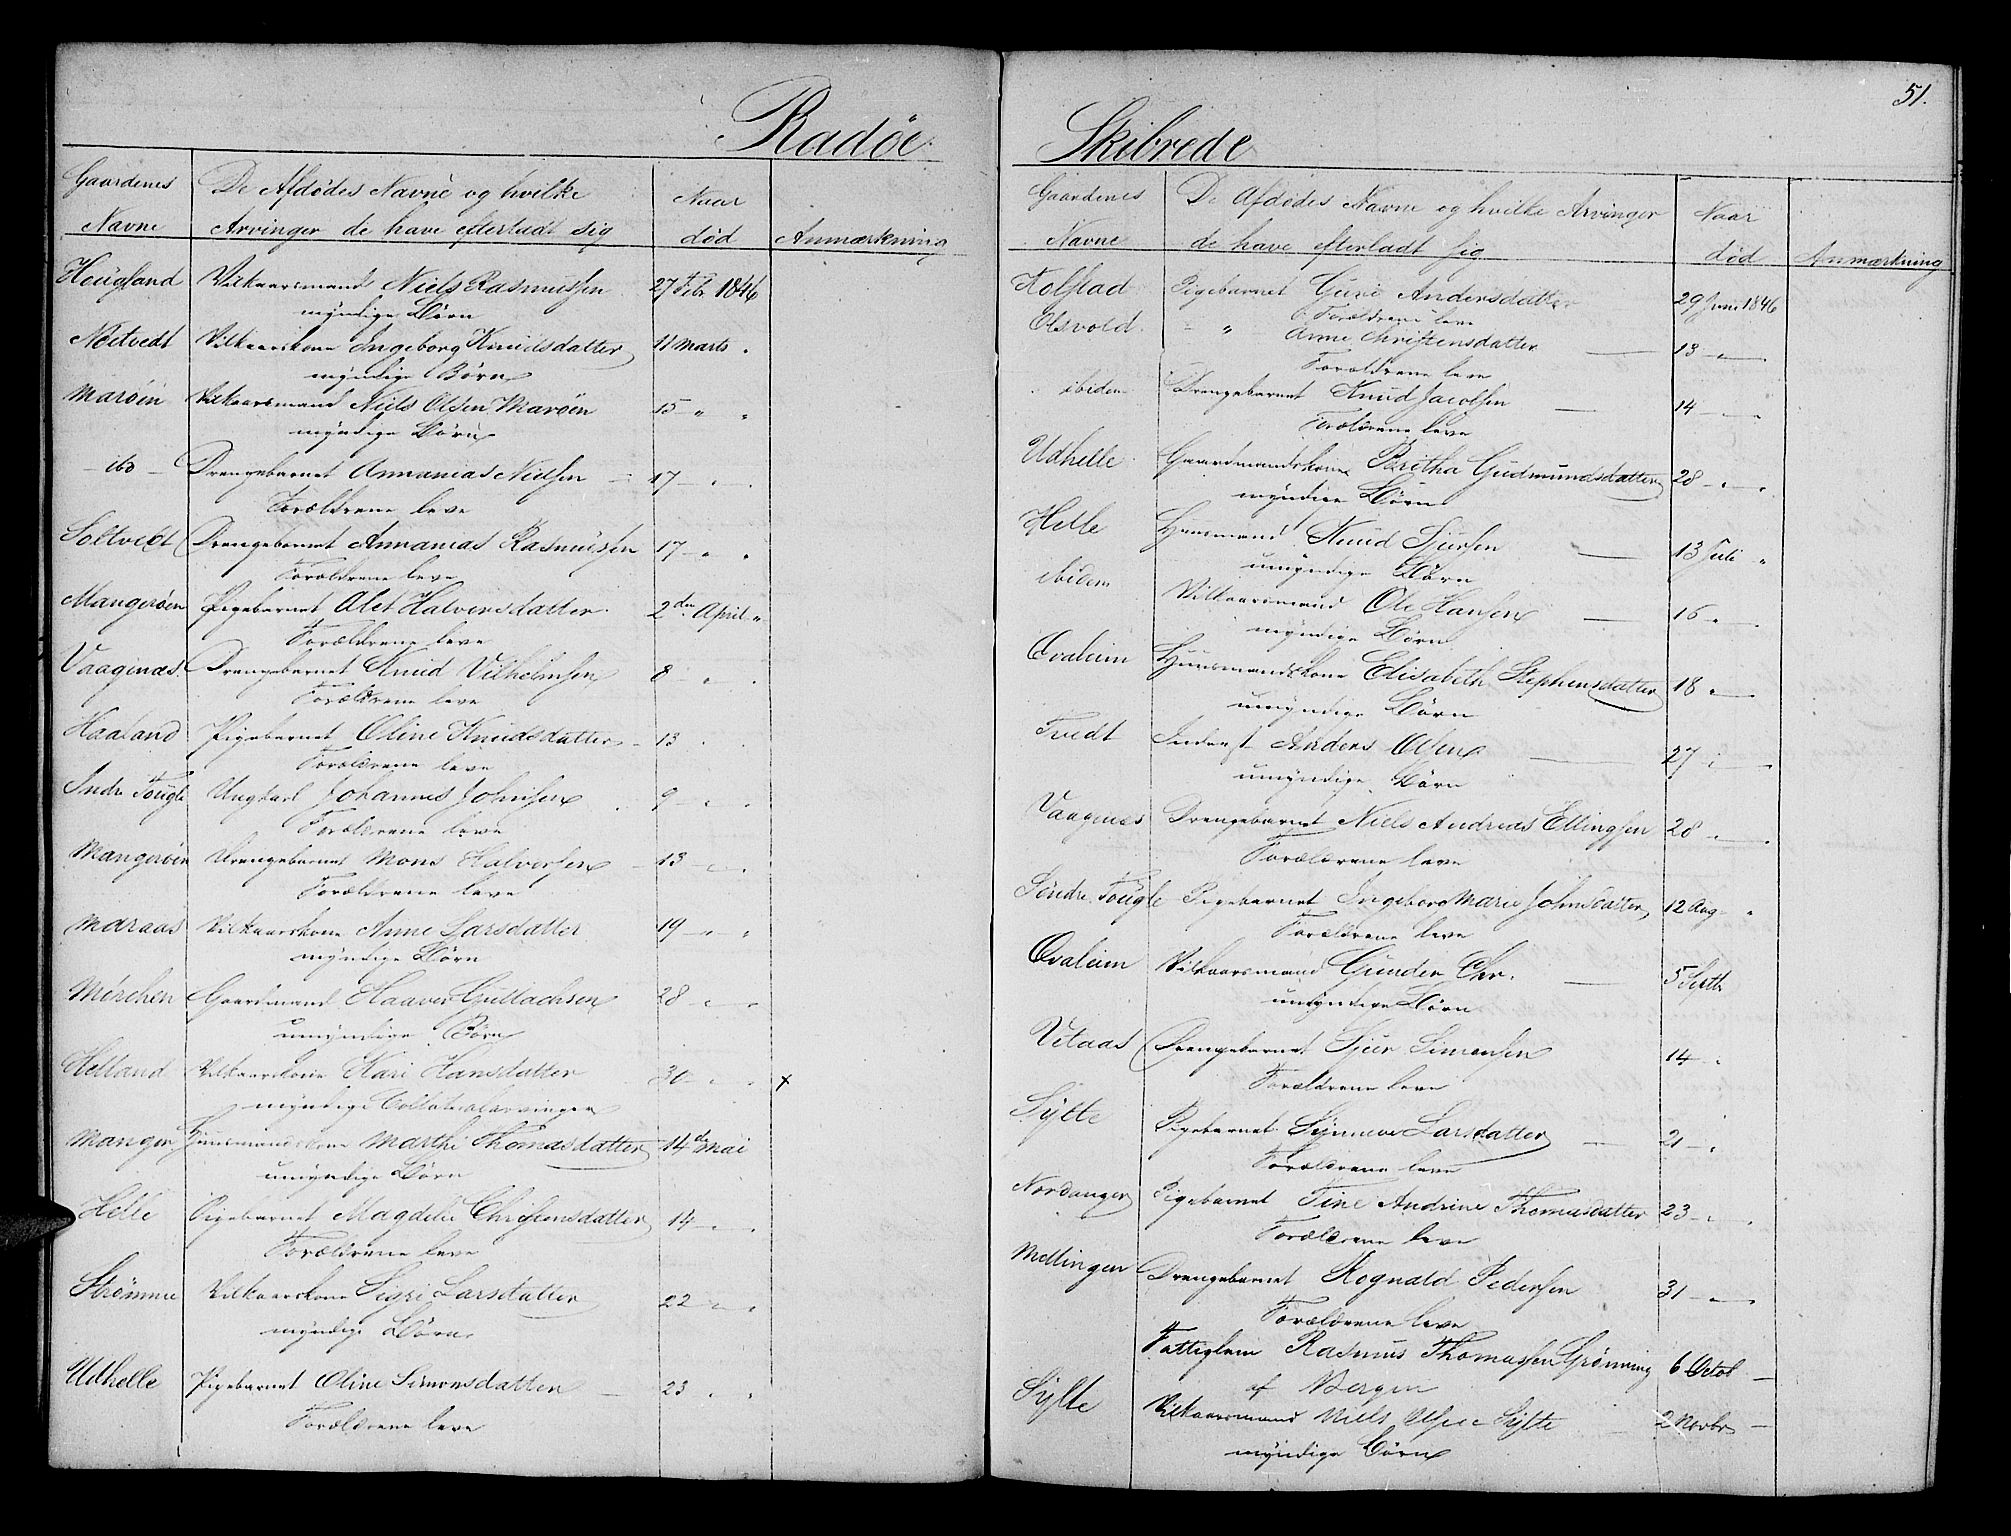 51.
Radöe
Gaardenes De Afdödes Navne og hvilke Naar
Navne Arvinger de have efterladt sig död Anmærkning
Heugland Vilkaarsmand Niels Rasmussen 27 Febr 1846
myndige Börn
Nætvedt Vilkaarskone Ingeborg Knudsdatter 11 Marts "
myndige Börn
Maröen Vilkaarsmand Niels Olsen Maröen 15 " "
myndige Börn
– ibd – Drengebarnet Annanias Nielsen 17 – " –
Forældrene leve
Soltvedt Drengebarnet Annanias Rasmussen 17 – " "
Forældrene leve
Mangeröen Pigebarnet Alet Halversdatter 2den April "
Forældrene leve
Vaagenæs Drengebarnet Knud Vilhelmsen 8 – "
Forældrene leve
Haaland Pigebarnet Oline Knudsdatter 13 " "
Forældrene leve
Indre Tougle Ungkarl Johannes Johnsen 9 – " "
Forældrene leve
Mangeröen Drengebarnet Mons Halversen 13 – " "
Forældrene leve
Maraas Vilkaarskone Anne Larsdatter 19 – " "
myndige Börn
Mörchen Gaardmand Haaver Gullachsen 28 – " "
umyndige Börn
Helland Vilkaarskone Kari Hansdatter 30 – " " x
myndige Collateralarvinger
Manger Huusmandskone Marthe Thomasdatter 14de Mai
umyndige Börn
Helle Pigebarnet Magdeli Christensdatter 14 – "
Forældrene leve
Strömme Vilkaarskone Sigri Larsdatter 22 " "
myndige Börn
Udhelle Pigebarnet Oline Simonsdatter 23 " "
Forældrene leve
Skibrede
Gaardenes De Afdödes Navne og hvilke Arvinger Naar
Navne de have efterladt sig död Anmærkning
Kolstad Pigebarnet Guri Andersdatter 29 Juni 1846
Forældrene leve
Olsvold – " Anne Christensdatter 13 – "
Forældrene leve
ibidem Drengebarnet Knud Jacobsen 14 – "
Forældrene leve
Udhelle Gaardmandskone Britha Gudmundsdatter 28 – " "
myndige Börn
Helle Huusmand Knud Sjursen 13 Juli "
umyndige Börn
ibidem Vilkaarsmand Ole Hansen 16 "
myndige Börn
Qvaleim Huusmandskone Elisabeth Stephensdatter 18 "
umyndige Börn
Tvedt Inderst Anders Olsen 27 "
umyndige Börn
Vaagenæs Drengebarnet Niels Andreas Ellingsen 28 "
Forældrene leve
Söndre Tougle Pigebarnet Ingeborg Marie Johnsdatter 12 Aug "
Forældrene leve
Qvaleim Vilkaarsmand Gunder Chr. 5 Septb
umyndige Börn
Vetaas Drengebarnet Sjur Simonsen 14 "
Forældrene leve
Sylte Pigebarnet Synneve Larsdatter 21 – "
Forældrene leve
Nordanger Pigebarnet Tine Andrine Thomasdatter 23 – "
Forældrene leve
Mellingen Drengebarnet Rognald Pedersen 31 – "
Forældrene leve
Fattiglem Rasmus Thomassen Grönning 6 Octob –
af Bergen
Sylte Vilkaarsmand Niels Olsen Sylte 2 Novbr –
myndige Börn